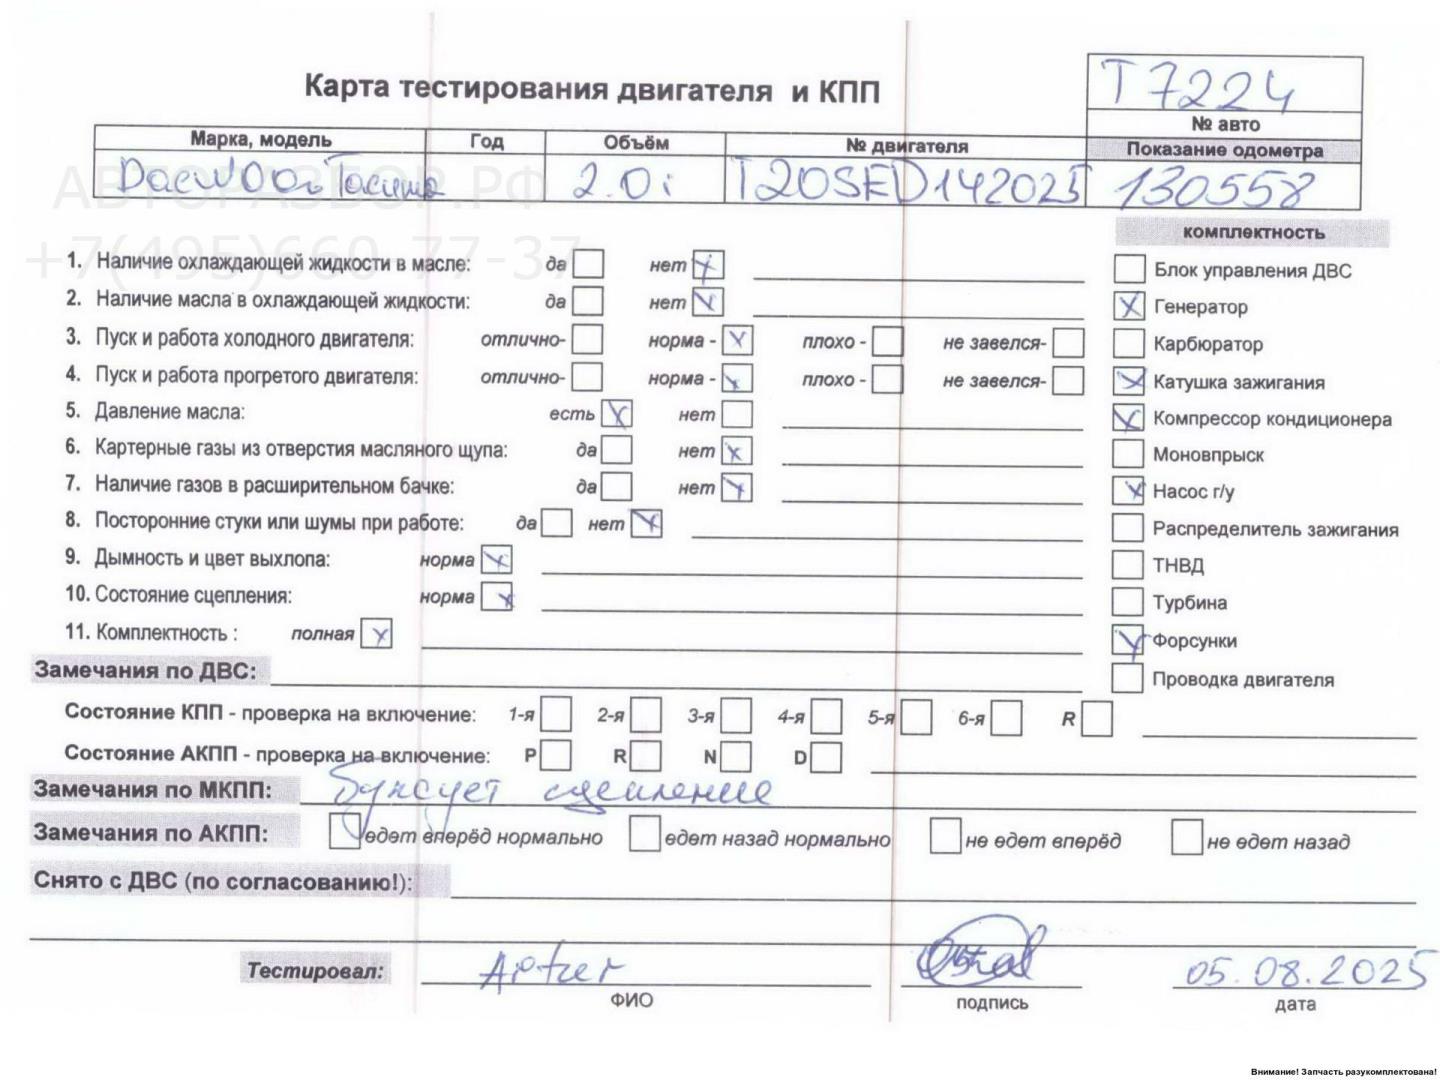 Карта тестирования двигателя и КПП
Т7224
№ авто
Марка, модель Год Объём № двигателя Показание одометра
Daewoo Tacuma 2.0i T20SED142025 130558
АВТОРАЗБОР.РФ
+7(495)660-77-37
комплектность
1. Наличие охлаждающей жидкости в масле: да нет x Блок управления ДВС
2. Наличие масла в охлаждающей жидкости: да нет x x Генератор
3. Пуск и работа холодного двигателя: отлично- норма - x плохо - не завелся- Карбюратор
4. Пуск и работа прогретого двигателя: отлично- норма - x плохо - не завелся- x Катушка зажигания
5. Давление масла: есть x нет x Компрессор кондиционера
6. Картерные газы из отверстия масляного щупа: да нет x Моновпрыск
7. Наличие газов в расширительном бачке: да нет x x Насос г/у
8. Посторонние стуки или шумы при работе: да нет x Распределитель зажигания
9. Дымность и цвет выхлопа: норма x ТНВД
10. Состояние сцепления: норма x Турбина
11. Комплектность : полная x x Форсунки
Замечания по ДВС: Проводка двигателя
Состояние КПП - проверка на включение: 1-я 2-я 3-я 4-я 5-я 6-я R
Состояние АКПП - проверка на включение: P R N D
Замечания по МКПП: Буксует сцепление
Замечания по АКПП: едет вперёд нормально едет назад нормально не едет вперёд не едет назад
Снято с ДВС (по согласованию!):
Тестировал: Artur 05.08.2025
ФИО подпись дата
Внимание! Запчасть разукомплектована!